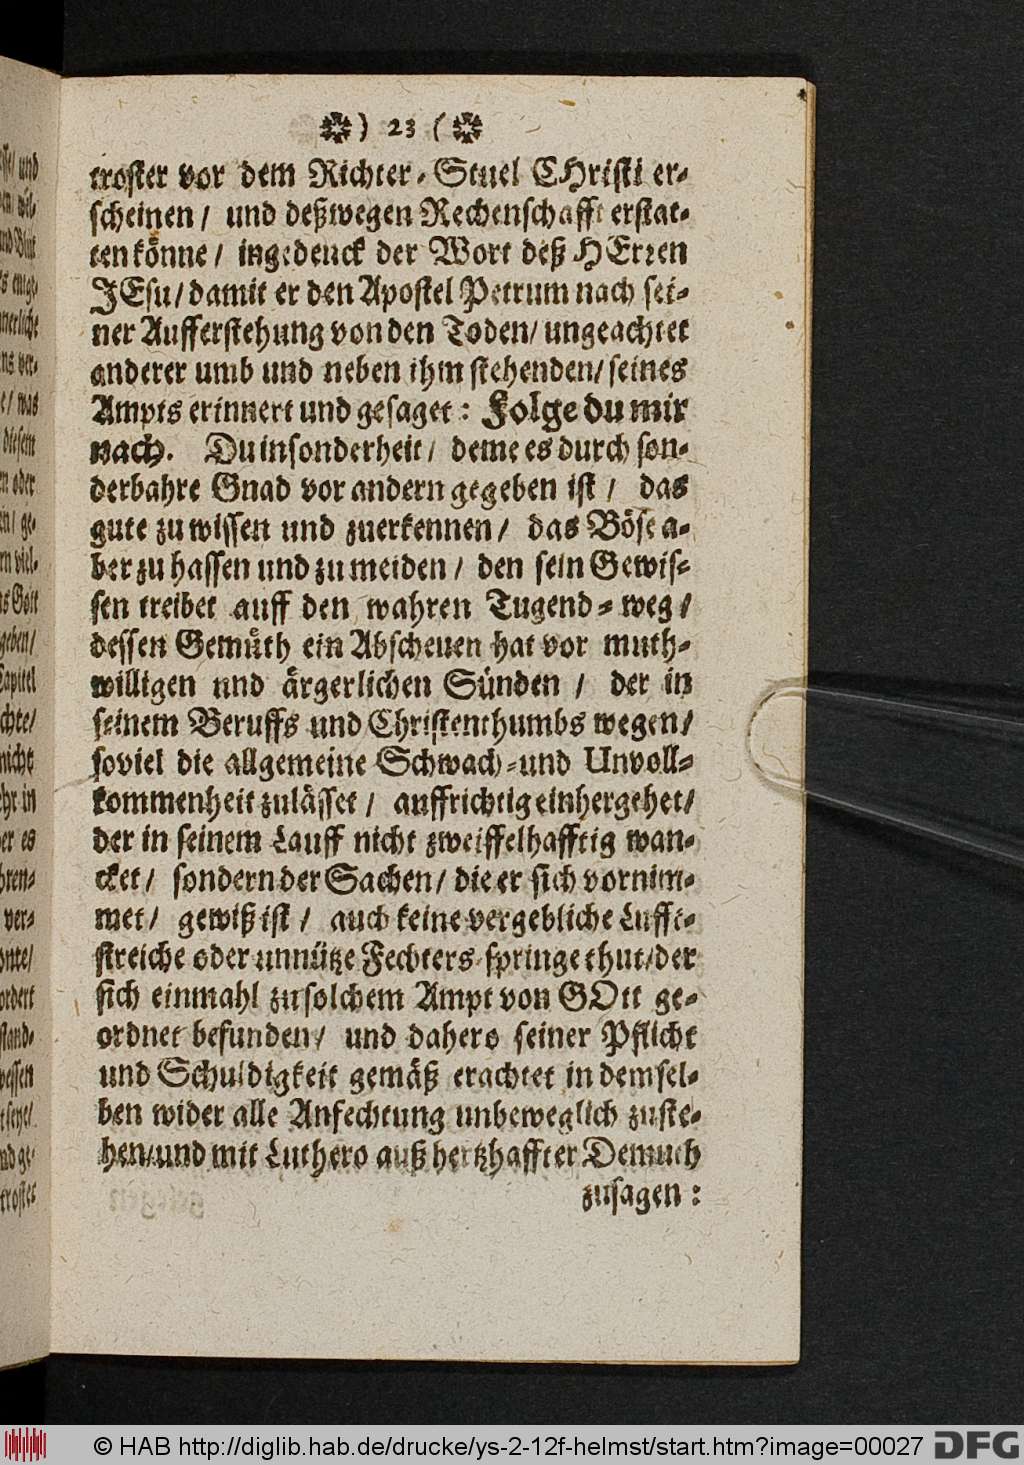 ❉) 23 (❉
troster vor dem Richter-Stuel CHristi er-
scheinen / und deßwegen Rechenschafft erstat-
ten könne / ingedenck der Wort deß HErren
JEsu / damit er den Apostel Petrum nach sei-
ner Aufferstehung von den Toden / ungeachtet
anderer umb und neben ihm stehenden / seines
Ampts erinnert und gesaget : Folge du mir
nach. Du insonderheit / deme es durch son-
derbahre Gnad vor andern gegeben ist / das
gute zu wissen und zuerkennen / das Böse a-
ber zu hassen und zu meiden / den sein Gewis-
sen treibet auff den wahren Tugend-weg /
dessen Gemüth ein Abscheuen hat vor muth-
willigen und ärgerlichen Sünden / der in
seinem Beruffs und Christenthumbs wegen /
soviel die allgemeine Schwach-und Unvoll-
kommenheit zulässet / auffrichtig einhergehet /
der in seinem Lauff nicht zweiffelhafftig wan-
cket / sondern der Sachen / die er sich vornim-
met / gewiß ist / auch keine vergebliche Lufft-
streiche oder unnütze Fechters-springe thut / der
sich einmahl zu solchem Ampt von GOtt ge-
ordnet befunden / und dahero seiner Pflicht
und Schuldigkeit gemäß erachtet in demsel-
ben wider alle Anfechtung unbeweglich zuste-
hen / und mit Luthero auß hertzhaffter Demuth
zusagen :
© HAB http://diglib.hab.de/drucke/ys-2-12f-helmst/start.htm?image=00027
DFG